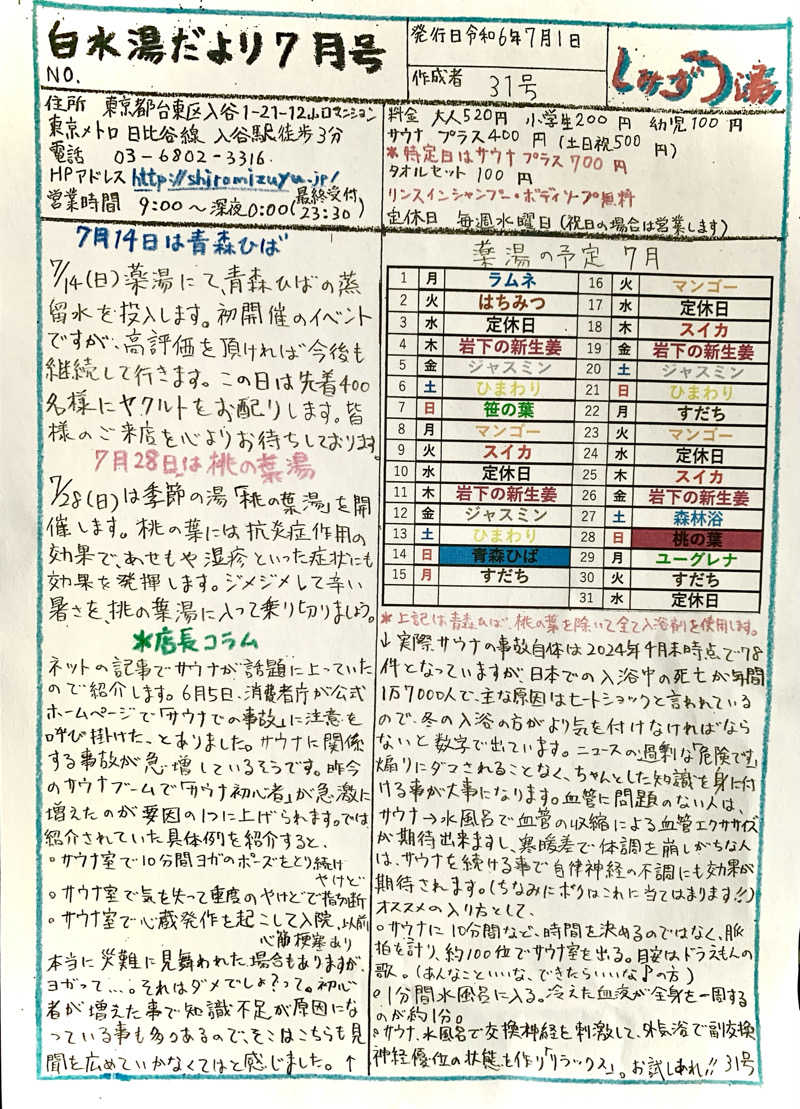 白水湯だより7月号
NO.
発行日令和6年7月1日
作成者 31号
しみずゆ湯
住所 東京都台東区入谷1-21-12山口マンション
東京メトロ 日比谷線 入谷駅徒歩3分
電話 03-6802-3316.
HPアドレス http://shiromizuyu.jp/
営業時間 9:00～深夜0:00(最終受付23:30)
料金 大人520円 小学生200円 幼児100円
サウナ プラス400円 (土日祝500円)
*特定日はサウナプラス700円
タオルセット 100円
リンスインシャンプー・ボディソープ無料
定休日 毎週水曜日(祝日の場合は営業します)
7月14日は青森ひば
7/14(日)薬湯にて、青森ひばの蒸
留水を投入します。初開催のイベント
ですが、高評価を頂ければ今後も
継続して行きます。この日は先着400
名様にヤクルトをお配りします。皆
様のご来店を心よりお待ちしております。
7月28日は桃の葉湯
7/28(日)は季節の湯「桃の葉湯」を開
催します。桃の葉には抗炎症作用の
効果で、あせもや湿疹といった症状にも
効果を発揮します。ジメジメして辛い
暑さを、桃の葉湯に入って乗り切りましょう。
*店長コラム
ネットの記事でサウナが話題に上っていた
ので紹介します。6月5日、消費者庁が公式
ホームページで「サウナでの事故」に注意を
呼び掛けた、とありました。サウナに関係
する事故が急増しているそうです。昨今
のサウナブームで「サウナ初心者」が急激に
増えたのが要因の1つに上げられます。では
紹介されていた具体例を紹介すると、
○サウナ室で10分間ヨガのポーズをとり続け
やけど
○サウナ室で気を失って重度のやけどで指切断
○サウナ室で心蔵発作を起こして入院、以前
心筋梗塞あり
本当に災難に見舞われた場合もありますが、
ヨガって…。それはダメでしょ?って。初心
者が増えた事で知識不足が原因にな
っている事も多々あるので、そこはこちらも見
聞を広めていかなくてはと感じました。↑
薬湯の予定 7月
1 月 ラムネ 16 火 マンゴー
2 火 はちみつ 17 水 定休日
3 水 定休日 18 木 スイカ
4 木 岩下の新生姜 19 金 岩下の新生姜
5 金 ジャスミン 20 土 ジャスミン
6 土 ひまわり 21 日 ひまわり
7 日 笹の葉 22 月 すだち
8 月 マンゴー 23 火 マンゴー
9 火 スイカ 24 水 定休日
10 水 定休日 25 木 スイカ
11 木 岩下の新生姜 26 金 岩下の新生姜
12 金 ジャスミン 27 土 森林浴
13 土 ひまわり 28 日 桃の葉
14 日 青森ひば 29 月 ユーグレナ
15 月 すだち 30 火 すだち
31 水 定休日
*上記は青森ひば、桃の葉を除いて全て入浴剤を使用します。
↓実際サウナの事故自体は2024年4月末時点で78
件となっていますが、日本での入浴中の死亡が年間
1万7000人で、主な原因はヒートショックと言われている
ので、冬の入浴の方がより気を付けなければなら
ないと数字で出ています。ニュースの過剰な「危険です」
煽りにダマされることなく、ちゃんとした知識を身に付
ける事が大事になります。血管に問題のない人は、
サウナ→水風呂で血管の収縮による血管エクササイズ
が期待出来ますし、寒暖差で体調を崩しがちな人
は、サウナを続ける事で自律神経の不調にも効果が
期待されます。(ちなみにボクはこれに当てはまります!!)
オススメの入り方として、
○サウナに10分間など、時間を決めるのではなく、脈
拍を計り、約100位でサウナ室を出る。目安はドラえもんの
歌。(あんなこといいな、できたらいいな♪の方)
○1分間水風呂に入る。冷えた血液が全身を一周する
のが約1分。
○サウナ、水風呂で交換神経を刺激して、外気浴で副交換
神経優位の状態を作り「リラックス」。お試しあれ!! 31号